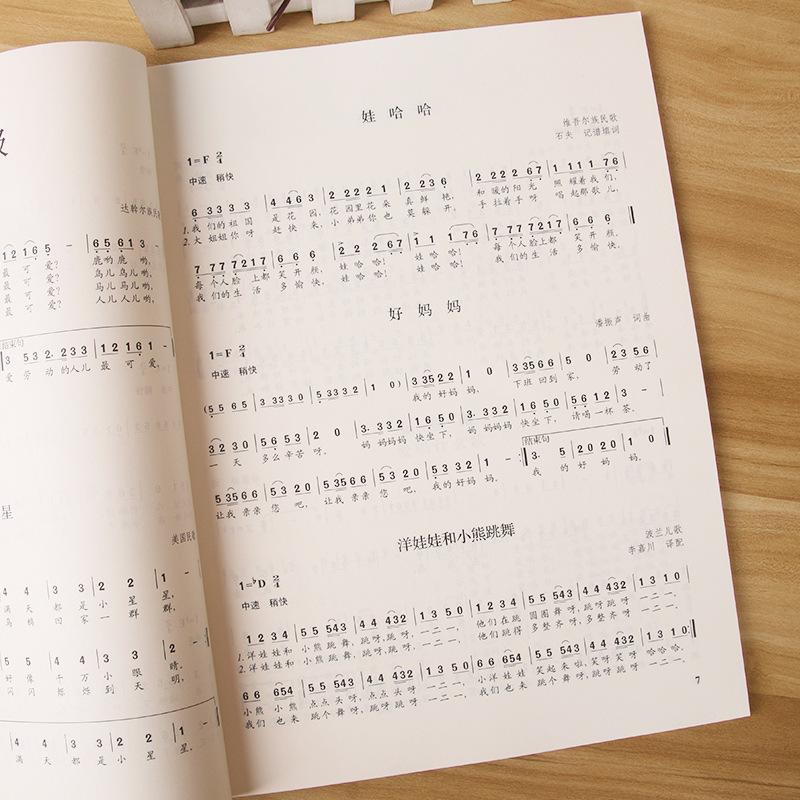 级
达斡尔族民
1 2 1 6 5 - | 6 5 6 1 5 -
最 可 爱? 鹿哟 鹿 哟,
最 可 爱? 鸟儿 鸟儿 哟,
最 可 爱? 马儿 马儿 哟,
最 可 爱? 人儿 人儿 哟,
结束句
3 5 3 2. 2 3 3 | 1 2 1 6 1 -
爱 劳 动 的人儿 最 可 爱。
星
美国民歌
4 4 3 3 | 2 2 1 -
满 天 都 是 小 星 星,
乌 鸦 回 家 一 群 群,
好 像 千 万 小 眼 睛。
闪 闪 烁 烁 到 天 明。
4 4 3 3 | 2 2 1 -
满 天 都 是 小 星 星。
娃 哈 哈
维吾尔族民歌
石夫 记谱填词
1=F 2/4
中速 稍快
6 3 3 3 3 | 4 4 6 3 | 2 2 2 2 1 | 2 2 3 6 | 2 2 2 2 1 | 1 1 1 1 7 6
1.我们的祖国 是 花 园, 花园里花朵 真鲜 艳, 和暖的阳光 照耀着我们,
2.大姐姐你呀 赶 快 来, 小弟弟你也 莫躲 开, 手拉着手呀 唱起那歌儿,
每个人脸上都 笑 开 颜, 娃哈哈! 娃哈哈! 每个人脸上都 笑 开 颜。
我们的生 活 多 愉 快, 娃哈哈! 娃哈哈! 我们的生 活 多 愉 快。
好 妈 妈
潘振声 词曲
1=F 2/4
中速 稍快
(5 5 6 5 | 3 3 3 2 | 5 3 3 3 2 | 1 0) | 3 3 5 2 2 | 3 3 5 | 5 0 | 2 3 5 6
我的好妈 妈, 下班回到 家, 劳 动了
3 2 3 0 | 5 6 5 3 | 2 0 | 3. 3 3 3 | 1 6 5 0 | 3. 3 3 3 | 1 6 5 0 | 5 6 5 3 | 1 -
一 天 多么辛苦 呀。 妈 妈妈妈 快坐下, 妈 妈妈妈 快坐下, 请喝一杯 茶。
5 3 5 6 6 | 3 2 0 | 5 3 5 6 6 | 3 2 0 | 5. 3 3 2 | 1 - | 3. 5 | 2 0 2 0 | 1 0
结束句
让我亲亲 您 吧, 让我亲亲 您 吧, 我的好妈 妈。 我 的 好 妈 妈。
洋娃娃和小熊跳舞
波兰儿歌
李嘉川 译配
1=♭D 2/4
中速 稍快
1 2 3 4 | 5 5 5 4 3 | 4 4 4 3 2 | 1 3 5 0 | 1 2 3 4 | 5 5 5 4 3 | 4 4 4 3 2 | 1 3 5 0
1.洋娃娃和 小熊跳舞, 跳呀,跳呀, 一二一, 他们在跳 圆圈舞呀, 跳呀,跳呀 一二一,
2.洋娃娃和 小熊跳舞, 跳呀,跳呀, 一二一, 他们跳得 多整齐呀, 多整齐呀 一二一,
6 6 6 5 4 | 5 5 5 4 3 | 4 4 4 3 2 | 1 3 5 0 | 6 6 6 5 4 | 5 5 5 4 3 | 4 4 4 3 2 | 1 3 1 0
小熊 小熊 点点头呀, 点点头呀 一二一, 小洋娃娃 笑起来啦, 笑呀笑呀 哈哈哈。
我们也来 跳个舞呀, 跳呀跳呀 一二一, 我们也来 跳个舞呀, 跳呀跳呀 一二一。
7